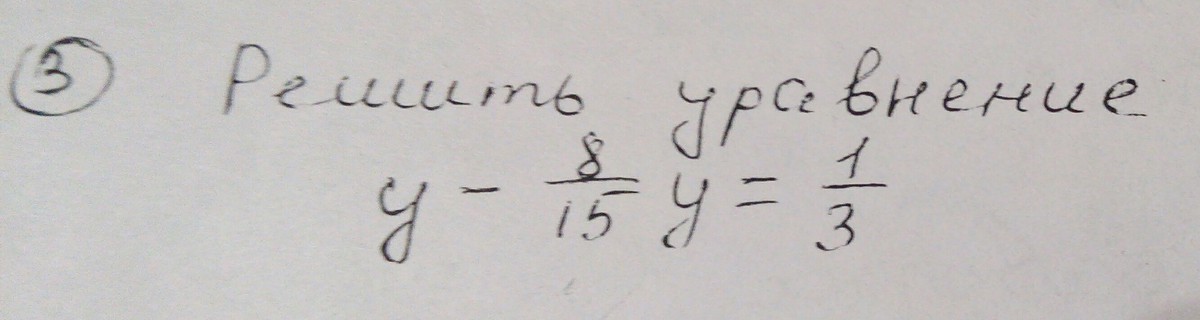 3 Решить уравнение
y - 8/15 y = 1/3